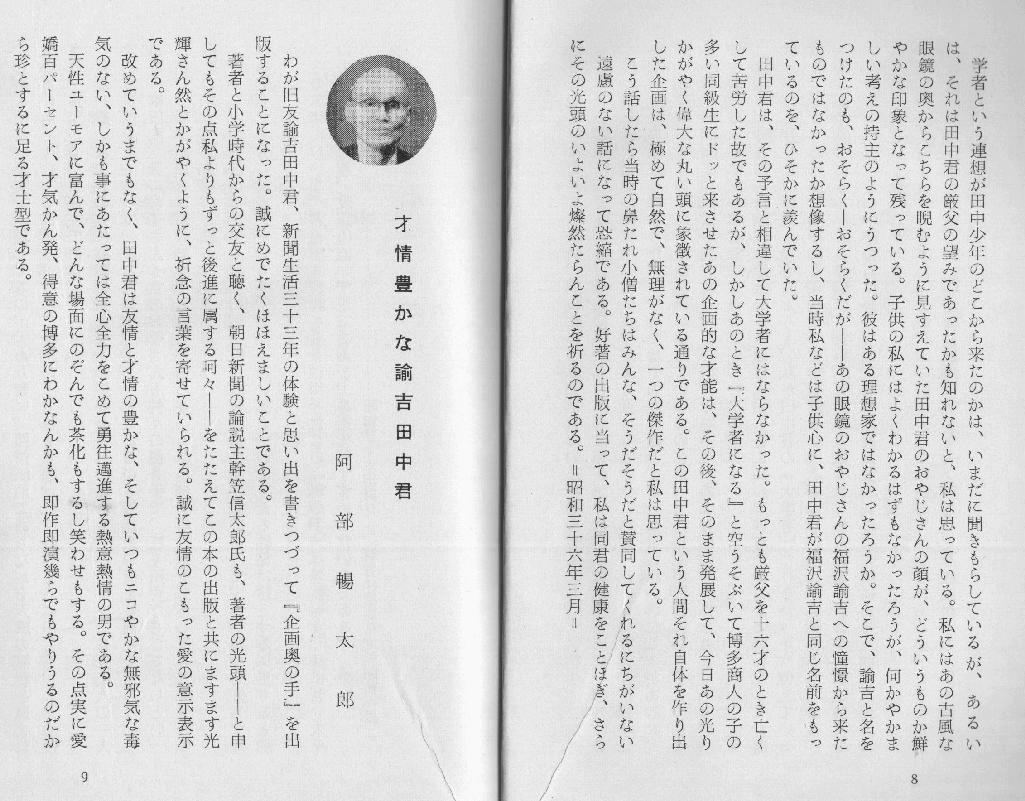 学者という連想が田中少年のどこから来たのかは、いまだに聞きもらしているが、あるい
は、それは田中君の厳父の望みであったかも知れないと、私は思っている。私にはあの古風な
眼鏡の奥からこちらを睨むように見すえていた田中君のおやじさんの顔が、どういうものか鮮
やかな印象となって残っている。子供の私にはよくわかるはずもなかったろうが、何かやかま
しい考えの持主のようにうつった。彼はある理想家ではなかったろうか。そこで、諭吉と名を
つけたのも、おそらく―おそらくだが――あの眼鏡のおやじさんの福沢諭吉への憧憬から来た
ものではなかったか想像するし、当時私などは子供心に、田中君が福沢諭吉と同じ名前をもっ
ているのを、ひそかに羨んでいた。
田中君は、その予言と相違して大学者にはならなかった。もっとも厳父を十六才のとき亡く
して苦労した故でもあるが、しかしあのとき『大学者になる』と空うそぶいて博多商人の子の
多い同級生にドッと来させたあの企画的な才能は、その後、そのまま発展して、今日あの光り
かがやく偉大な丸い頭に象徴されている通りである。この田中君という人間それ自体を作り出
した企画は、極めて自然で、無理がなく、一つの傑作だと私は思っている。
こう話したら当時の鼻たれ小僧たちはみんな、そうだそうだと賛同してくれるにちがいない
遠慮のない話になって恐縮である。好著の出版に当って、私は同君の健康をことほぎ、さら
にその光頭のいよいよ燦然たらんことを祈るのである。＝昭和三十六年三月＝
8
才情豊かな諭吉田中君
阿部暢太郎
わが旧友諭吉田中君、新聞生活三十三年の体験と思い出を書きつづって『企画奥の手』を出
版することになった。誠にめでたくほほえましいことである。
著者と小学時代からの交友と聴く、朝日新聞の論説主幹笠信太郎氏も、著者の光頭――と申
してもその点私よりもずっと後進に属する呵々――をたたえてこの本の出版と共にますます光
輝さん然とかがやくように、祈念の言葉を寄せていられる。誠に友情のこもった愛の意示表示
である。
改めていうまでもなく、田中君は友情と才情の豊かな、そしていつもニコやかな無邪気な毒
気のない、しかも事にあたっては全心全力をこめて勇往邁進する熱意熱情の男である。
天性ユーモアに富んで、どんな場面にのぞんでも茶化もするし笑わせもする。その点実に愛
嬌百パーセント、才気かん発、得意の博多にわかなんかも、即作即演幾らでもやりうるのだか
ら珍とするに足る才士型である。
9